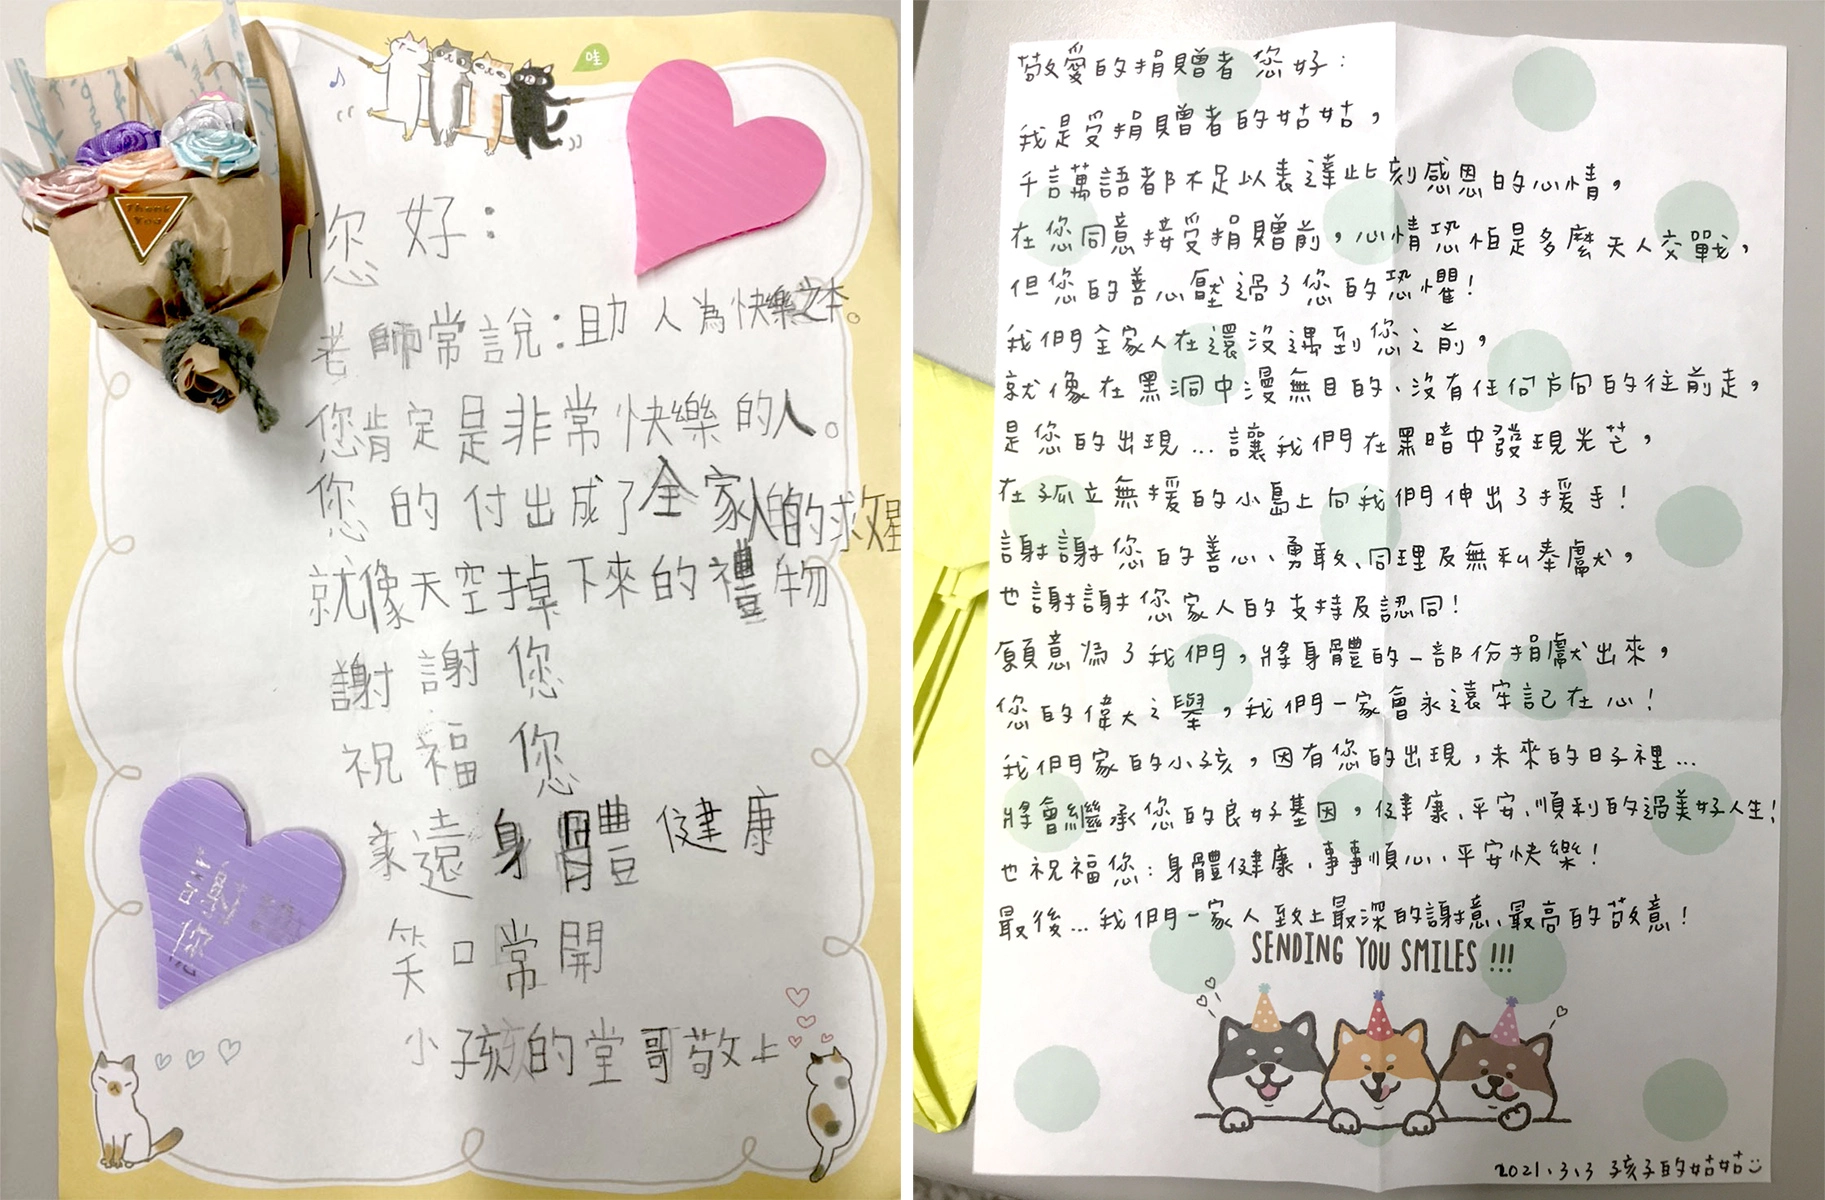 哇
Thank
You
您好：
老師常說：助人為快樂之本。
您肯定是非常快樂的人。
您的付出成了全家人的救星
就像天空掉下來的禮物
謝謝您
祝福您
永遠身體健康
笑口常開
小孩的堂哥敬上
敬愛的捐贈者您好：
我是受捐贈者的姑姑，
千言萬語都不足以表達此刻感恩的心情，
在您同意接受捐贈前，心情恐怕是多麼天人交戰，
但您的善心壓過了您的恐懼！
我們全家人在還沒遇到您之前，
就像在黑洞中漫無目的、沒有任何方向的往前走，
是您的出現...讓我們在黑暗中發現光芒，
在孤立無援的小島上向我們伸出了援手！
謝謝您的善心、勇敢、同理及無私奉獻，
也謝謝您家人的支持及認同！
願意為了我們，將身體的一部份捐獻出來，
您的偉大之舉，我們一家會永遠牢記在心！
我們家的小孩，因有您的出現，未來的日子裡...
將會繼承您的良好基因，健康、平安、順利的過美好人生！
也祝福您：身體健康、事事順心、平安快樂！
最後...我們一家人致上最深的謝意、最高的敬意！
SENDING YOU SMILES !!!
2021.3.3 孩子的姑姑